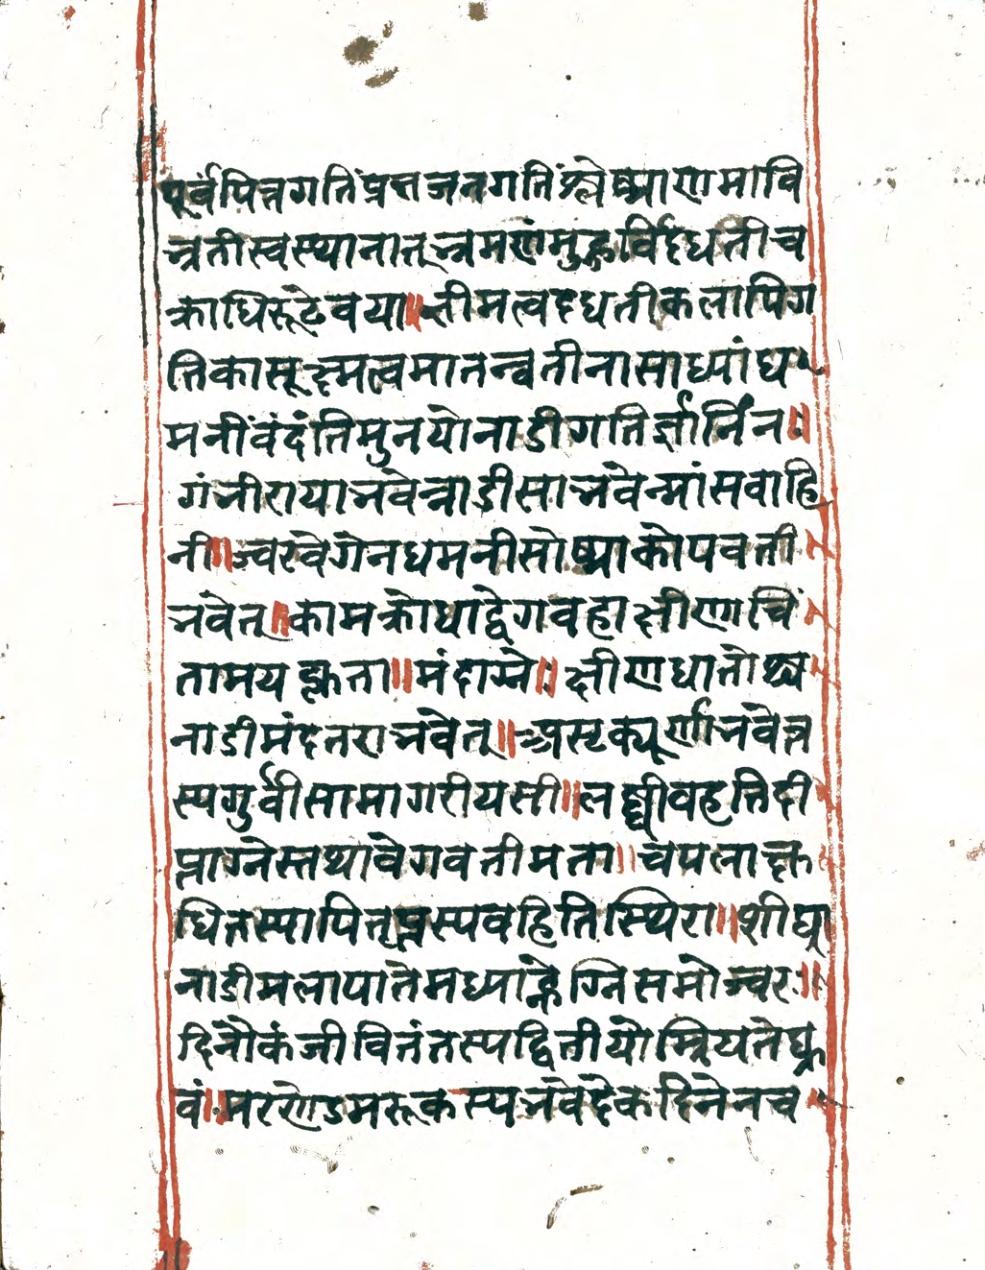 पूर्वंपित्तगतिंप्रभंजनगतिंश्लेष्माणमावि
भ्रतीस्वस्थानात्भ्रमणंमुहुर्विदधतीच
क्राधिरूढेवया॥तीमत्वंदधतीकलापिग
तिकासूक्ष्मत्वमातन्वतीनासाध्यांध
मनींवंदंतिमुनयोनाडीगतिर्ज्ञानिनः॥
गंभीरायाभवेन्नाडीसाभवेन्मांसवाहि
नी॥ज्वरवेगेनधमनीसोष्माकोपवती
भवेत्॥कामक्रोधाद्वेगवहाक्षीणाचिं
तामयह्नता॥मंदाग्नेः॥क्षीणधातोश्च
नाडीमंदतराभवेत्॥असृक्पूर्णाभवेत्त
स्पगुर्वीसामागरीयसी॥लघ्वीवहतिदी
प्ताग्नेस्तथावेगवतीमता॥चपलाक्षु
धितस्यापितृप्तस्पवहितिस्थिरा॥शीघ्रा
नाडीमलापातेमध्याह्नेग्निसमोज्वरः॥
दिनैकंजीवितंतस्पद्वितीयोम्रियतेध्रु
वं॥मरणेडमरुकस्यभवेदेकदिनेनच